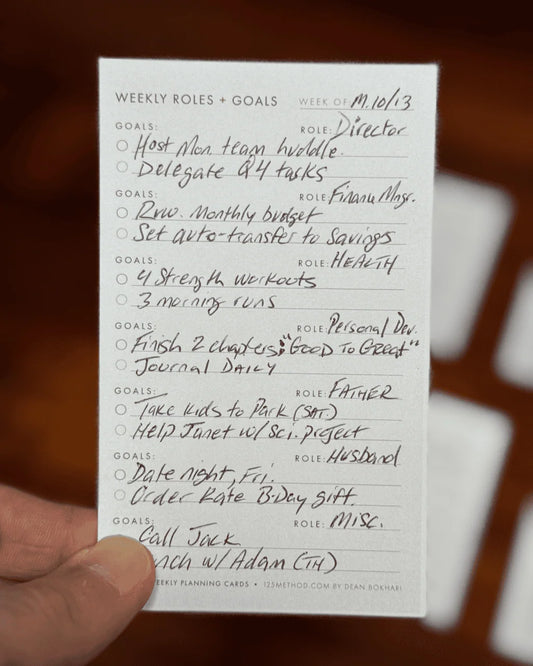 WEEKLY ROLES + GOALS WEEK OF M.10/13
GOALS: ROLE: Director
Host Mon. team huddle.
Delegate Q4 tasks
GOALS: ROLE: Finance Mngr.
Rvw. Monthly budget
Set auto-transfer to Savings
GOALS: ROLE: HEALTH
4 Strength workouts
3 morning runs
GOALS: ROLE: Personal Dev.
Finish 2 chapters; "GOOD TO GREAT"
Journal DAILY
GOALS: ROLE: FATHER
Take kids to Park (SAT.)
Help Janet w/ Sci. project
GOALS: ROLE: Husband
Date night, Fri.
Order Kate B-Day gift.
GOALS: ROLE: MISC.
Call Jack
w/ Adam (TH)
WEEKLY PLANNING CARDS • 125METHOD.COM BY DEAN BOKHARI